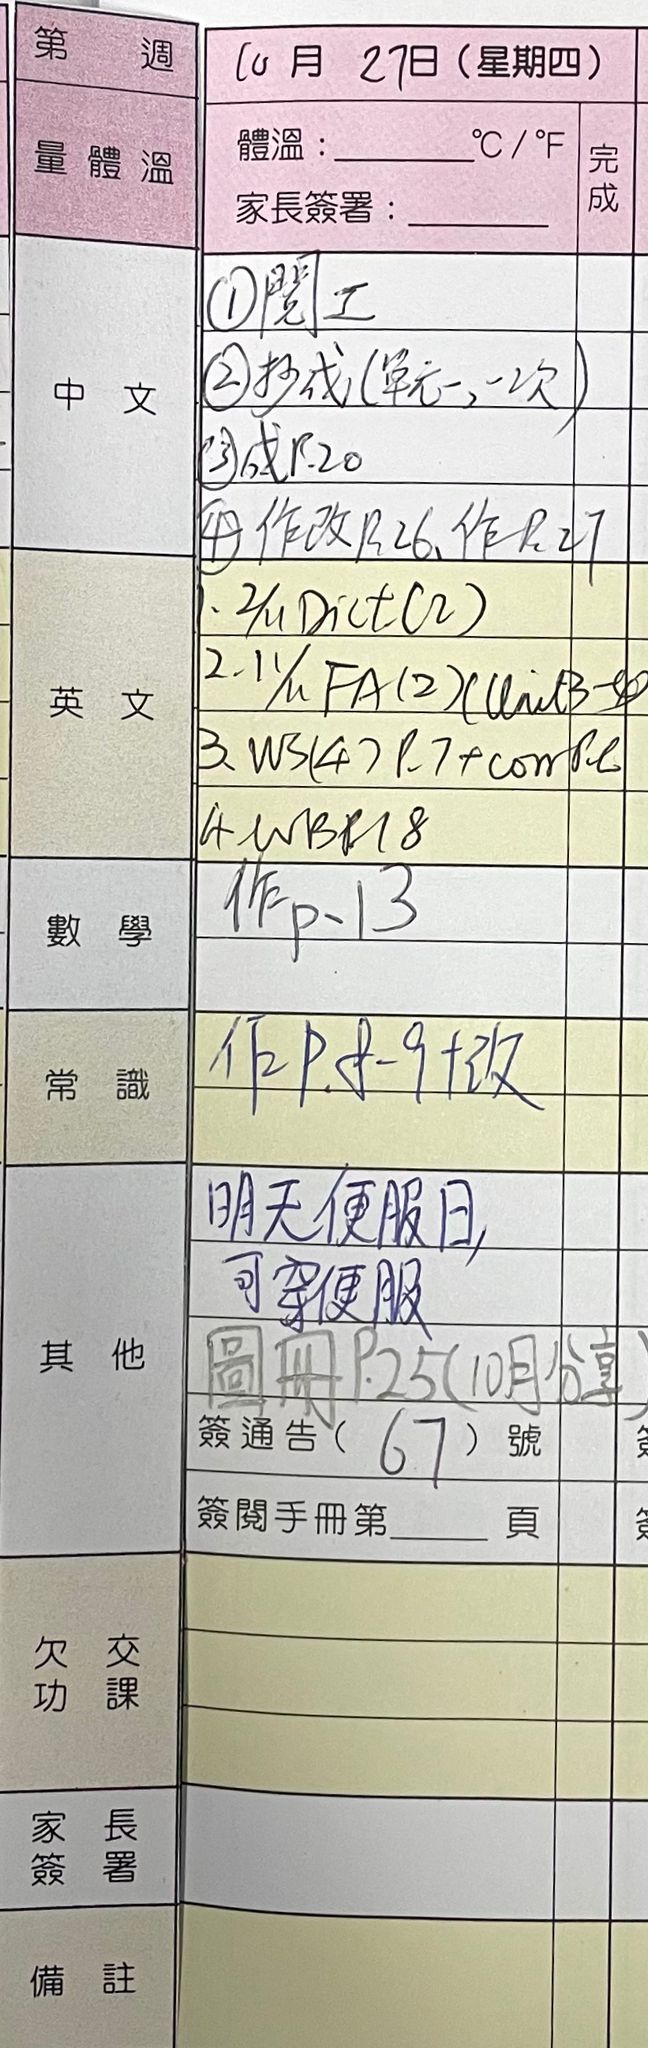 第 週
10月 27日(星期四)
量體溫
體溫:______°C/°F
家長簽署:______
完成
中文
①閱工
②抄成(單元一,一次)
③成P.20
④作改P.26、作P.27
英文
1. 2/11 Dict(2)
2. 11/11 FA(2)(Unit3-
3. WS(4) P.7+corr P.6
4. WB P.18
數學
作p.13
常識
作P.8-9+改
其他
明天便服日,
可穿便服
圖冊P.25(10月分享)
簽通告(67)號
簽閱手冊第______頁
欠交功課
家長簽署
備註